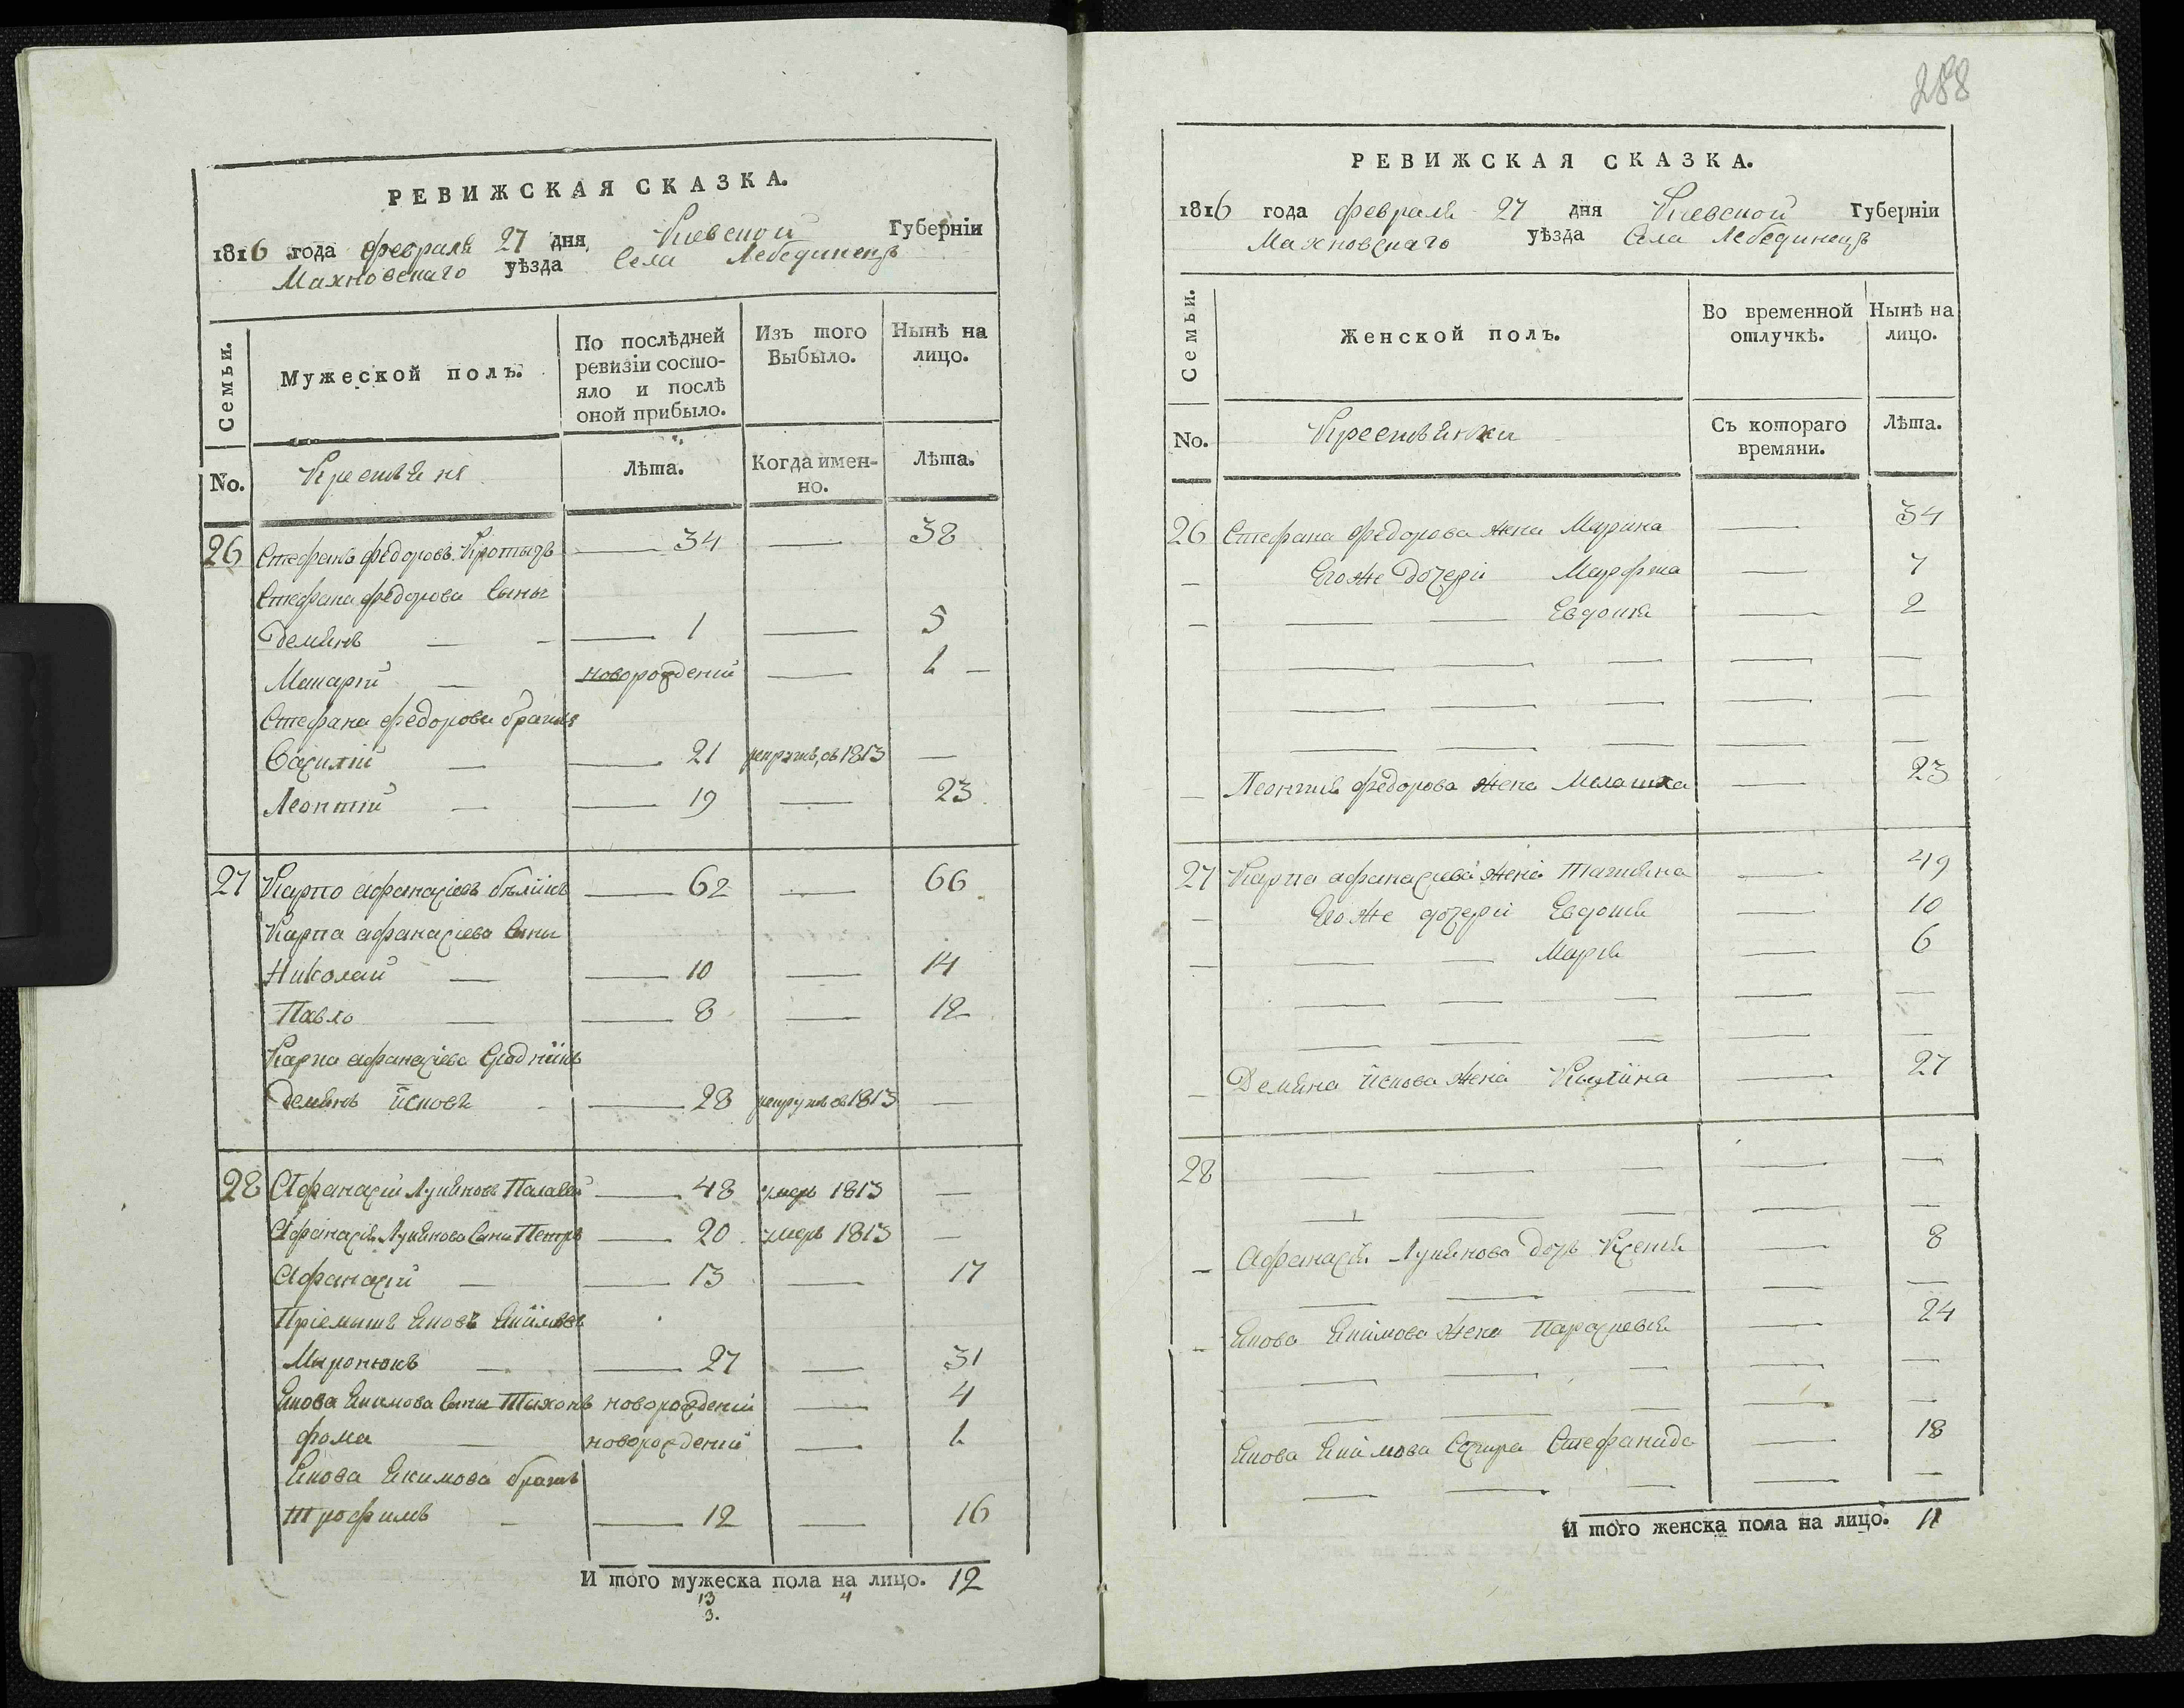 РЕВИЖСКАЯ СКАЗКА.
1816 года февраля 27 дня Киевской Губерніи
Махновскаго уѣзда Села Лебединецъ
Семьи. Мужеской полъ. По послѣдней ревизіи состояло и послѣ оной прибыло. Изъ того Выбыло. Нынѣ на лицо.
No. Крестьяня Лѣта. Когда именно. Лѣта.
26 Стефанъ федоровъ — 34 — 38
Стефана федорова Сыны
Демянъ — — 1 — 5
Макарій — новорожденій — 1 —
Стефана федорова братья
Василій — — 21 рекрутъ, съ 1813 —
Леонтій — — 19 — 23
27 Карпо афанасіевъ — 62 — 66
Карпа афанасіева Сыны
Николай — — 10 — 14
Павло — — 8 — 12
Карпа афанасіева Сродникъ
Демянъ — 28 рекрутъ съ 1813 —
28 Афанасій Лукяновъ — 48 умеръ 1813 —
Афанасія Лукянова Сыны Петръ — 20 умеръ 1813 —
Афанасій — — 13 — 17
Пріемышъ Яковъ Якимовъ
Миронюкъ — — 27 — 31
Якова Якимова Сыны Тихонъ новорожденій — 4
фома — новорожденій — 1
Якова Якимова братъ
Трофимъ — — 12 — 16
И того мужеска пола на лицо. 12
13 4
3.
288
РЕВИЖСКАЯ СКАЗКА.
1816 года февраля 27 дня Киевской Губерніи
Махновскаго уѣзда Села Лебединецъ
Семьи. Женской полъ. Во временной отлучкѣ. Нынѣ на лицо.
No. Крестьянки Съ котораго времяни. Лѣта.
26 Стефана федорова жена Марина — 34
— Его же дочери Марфта — 7
— — — Евдокія — 2
— — — — —
— — — — —
— — — — —
— Леонтія федорова жена Малашка — 23
27 Карпа афанасіева жена Татіяна — 49
— Его же дочери Евдокія — 10
— — — Марія — 6
— — — — —
— — — — —
— Демяна жена — 27
28 — — — — —
— — — — —
— Афанасія Лукянова дочь Ксенія — 8
— — — — —
— Якова Якимова жена Параскевія — 24
— — — — —
— — — — —
Якова Якимова Сестра Стефанида — 18
— — — — —
И того женска пола на лицо. 11